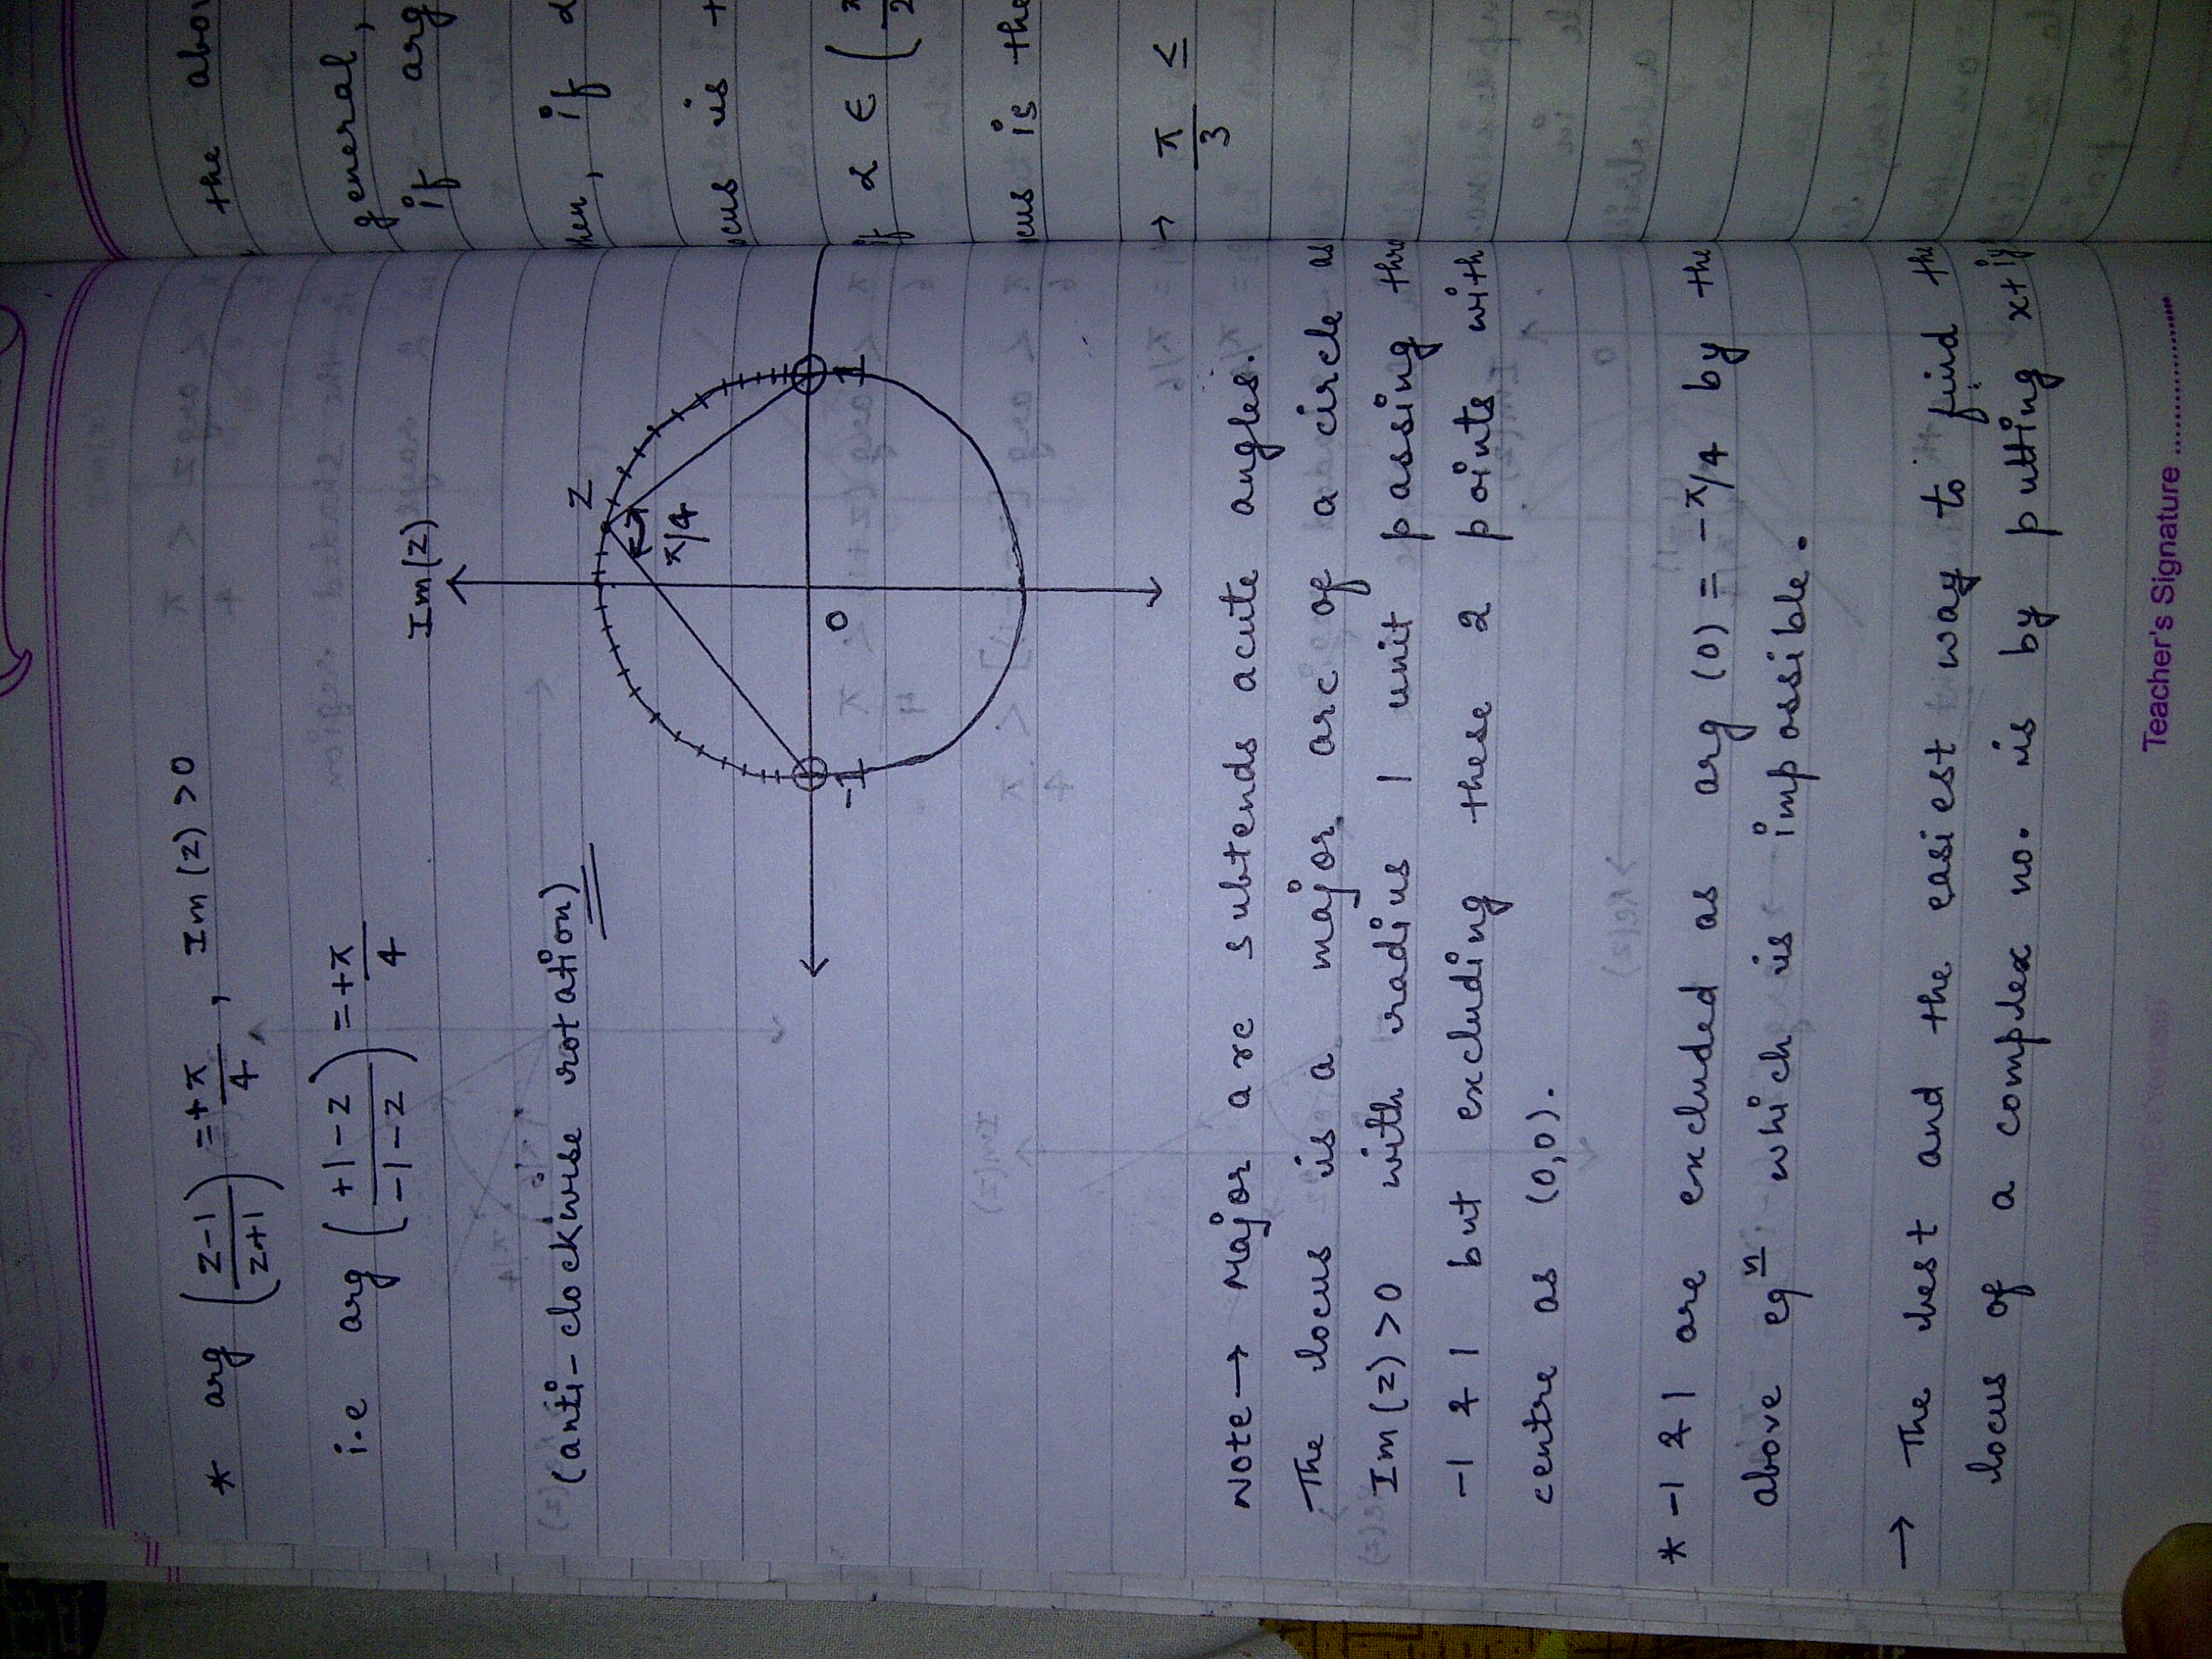 * arg (z-1/z+1) = +π/4 , Im(z) >0
i.e arg (+1-z/-1-z) = +π/4
Im(z)
(anti-clockwise rotation)
z
π/4
-1 0 1
Note → Major arc subtends acute angles.
The locus is a major arc of a circle as
Im(z) >0 with radius 1 unit passing thro
-1 & 1 but excluding these 2 points with
centre as (0,0).
* -1 & 1 are excluded as arg (0) = -π/4 by the
above eqn which is impossible.
→ The best and the easiest way to find the
locus of a complex no. is by putting x+iy
Teacher's Signature ....................
the abov
general,
if arg
hen, if α
ocus is t
if α ∈ (π/2
cus is the
→ π/3 ≤